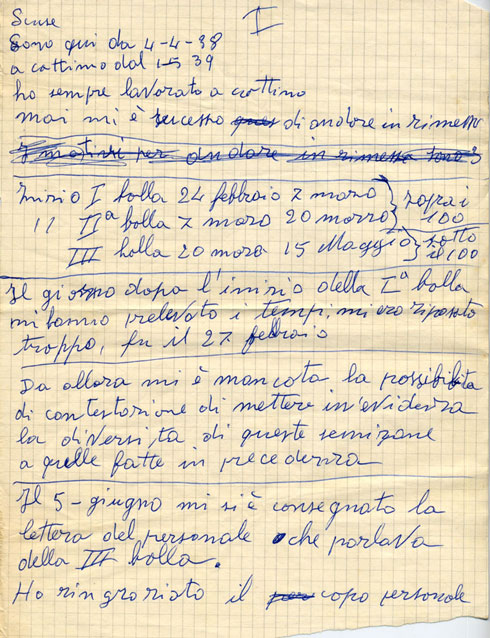 I
Scuse
Sono qui da 4-4-38
a cottimo dal 1-5 39
ho sempre lavorato a cottimo
mai mi è sucesso di andare in rimessa
I motivi per andare in rimessa sono
Inizio I bolla 24 febbraio 7 marzo } sopra i
100
11 IIª bolla 7 marzo 20 marzo
III bolla 20 marzo 15 Maggio } sotto
il 100
Il giorno dopo l'inizio della Iª bolla
mi hanno prelevato i tempi, mi ero riposato
troppo, fu il 27 febbraio
Da allora mi è mancata la possibilita
di contestazione di mettere in'evidenza
la diversita di queste semizone
a quelle fatte in precedenza
Il 5-giugno mi si è consegnato la
lettera del personale che parlava
della III bolla.
Ho ringraziato il capo personale